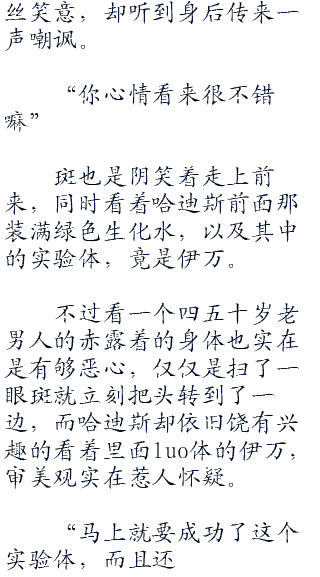 丝笑意，却听到身后传来一
声嘲讽。
“你心情看来很不错
嘛”
斑也是阴笑着走上前
来，同时看着哈迪斯前面那
装满绿色生化水，以及其中
的实验体，竟是伊万。
不过看一个四五十岁老
男人的赤露着的身体也实在
是有够恶心，仅仅是扫了一
眼斑就立刻把头转到了一
边，而哈迪斯却依旧饶有兴
趣的看着里面luo体的伊万，
审美观实在惹人怀疑。
“马上就要成功了这个
实验体，而且还